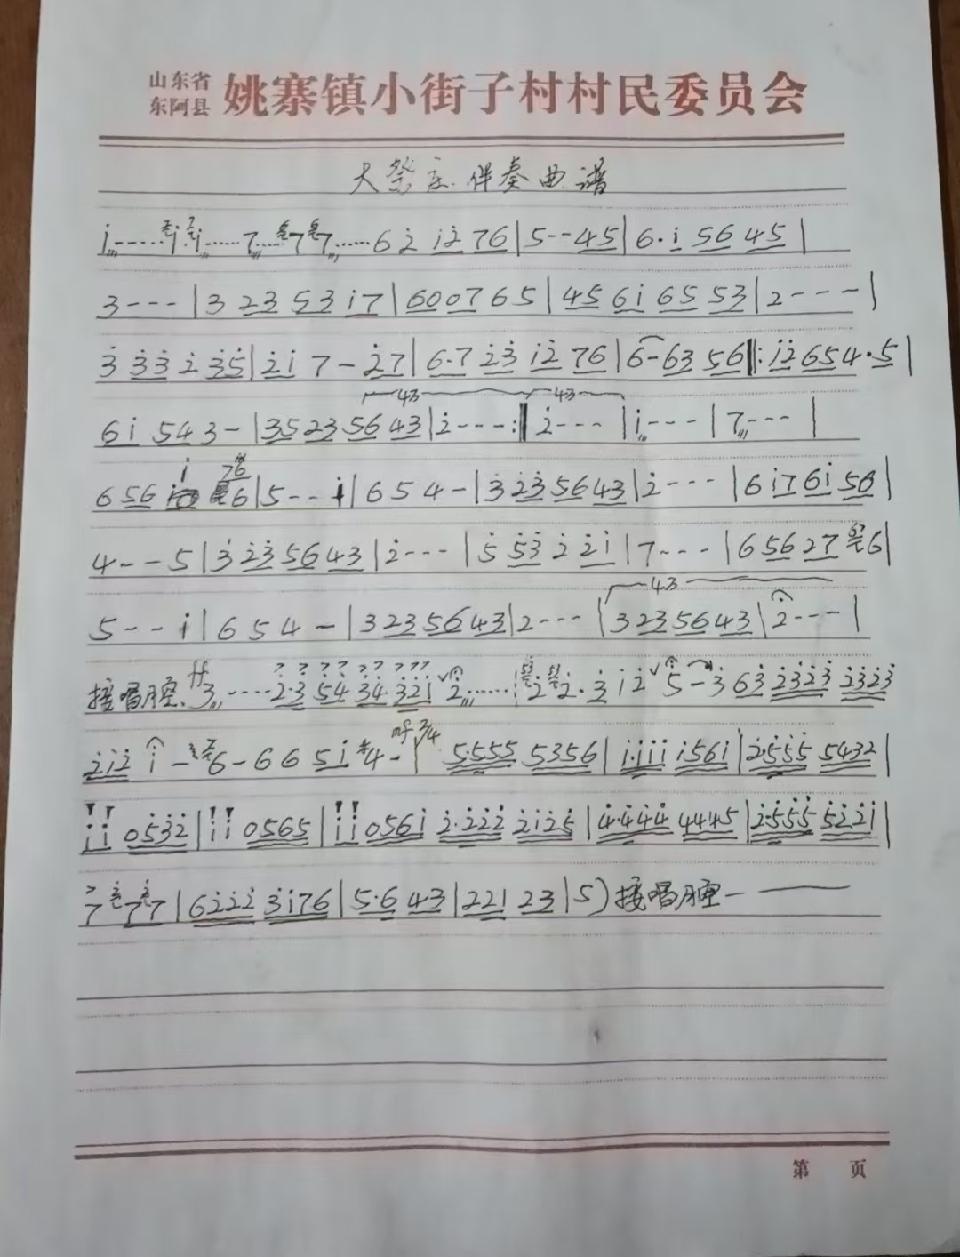 山东省
东阿县 姚寨镇小街子村村民委员会
大祭 伴奏曲谱
i------i i------7---7 7------6 2̇ i2̇ 76|5--45|6·i 56 45|
3---|3 23 53 i7|600765|456i6553|2----|
3̇ 3̇3̇ 2̇ 3̇5̇|2̇i 7-2̇7|6·7 2̇3̇ i2̇ 76|6-63 56‖:i2̇654·5|
43 43
6i 543-|35235643|2̇----:‖2̇----|i----|7---|
656 i 76 6|5--i|654-|3̇2̇3̇5643|2̇----|6i76i56|
4--5|3̇2̇35643|2̇---|5̇ 5̇3̇ 2̇ 2̇i|7---|65627 6|
43
5--i|654-|3235643|2---|3235643|2---|
接唱腔 ff 3------2·3 54 34 321 2̇------2̇ 2̇·3̇ i2̇ 5-3 63̇ 2̇3̇2̇3̇ 2̇3̇2̇3̇
2̇i2̇ i-6-665i #4- mf 2/4 5·555 5356|i·iii i56i|2̇·5̇5̇5̇ 5432|
ii 05̇3̇2̇|ii 0565|ii 056i 2̇·2̇2̇2̇ 2̇i2̇5|4·444 4445|2̇·5̇5̇5̇ 5̇2̇2̇i|
7 77|62̇2̇2̇ 3̇i76|5·6 43|221 23|5)接唱腔——
第 页